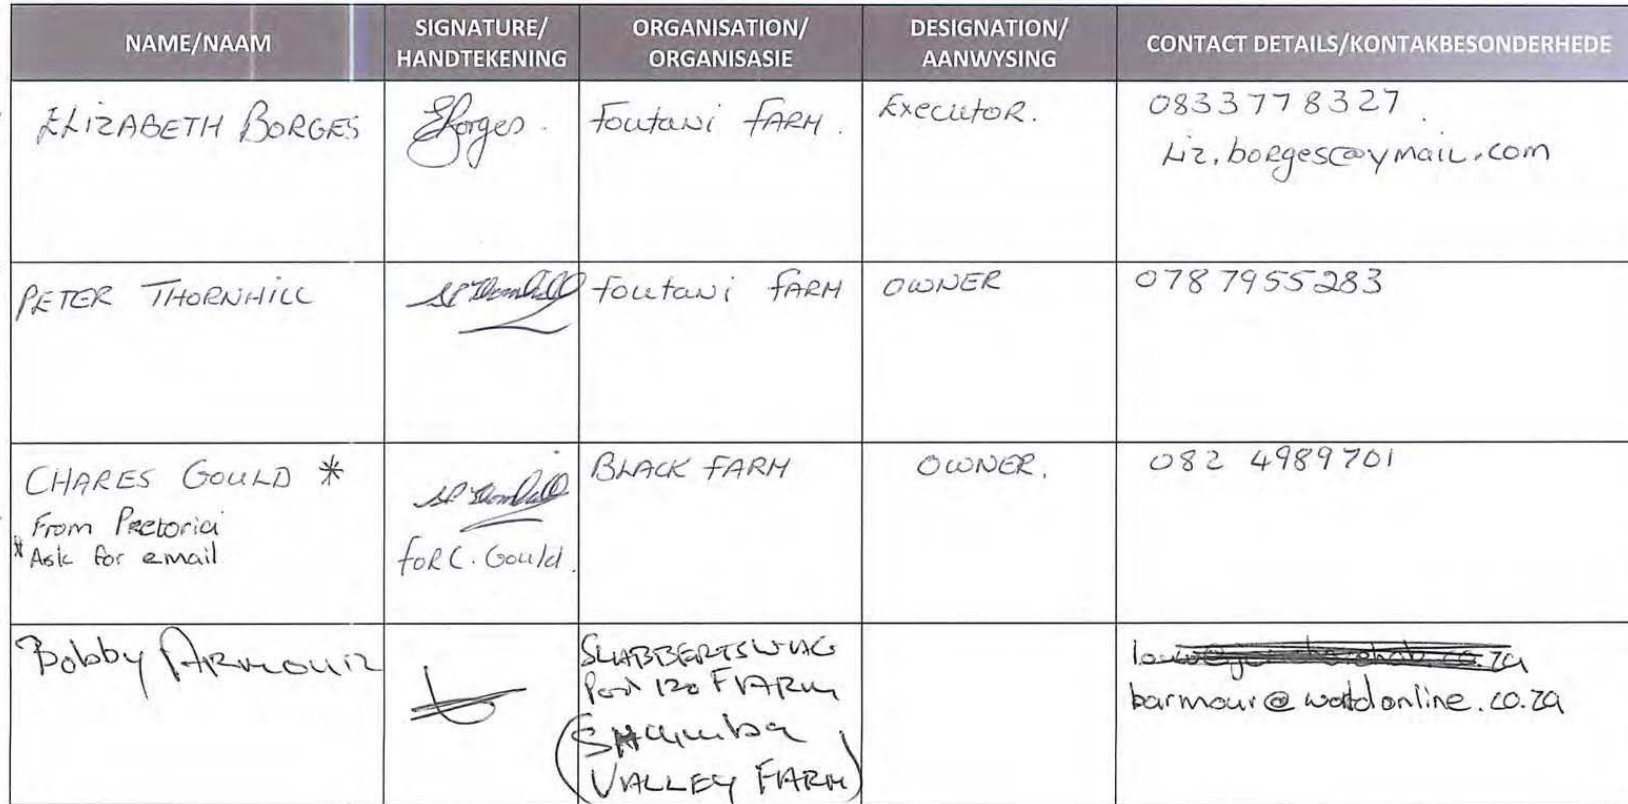 NAME/NAAM
SIGNATURE/
HANDTEKENING
ORGANISATION/
ORGANISASIE
DESIGNATION/
AANWYSING
CONTACT DETAILS/KONTAKBESONDERHEDE
ELIZABETH BORGES
EBorges.
Foutani FARM.
Executor.
0833778327.
Liz.borges@ymail.com
PETER THORNHILL
Foutani FARM
OWNER
0787955283
CHARES GOULD *
From Pretoria
* Ask for email
FOR C. Gould.
BLACK FARM
OWNER.
082 4989701
Bobby Armour
FARM
VALLEY FARM)
barmour@worldonline.co.za